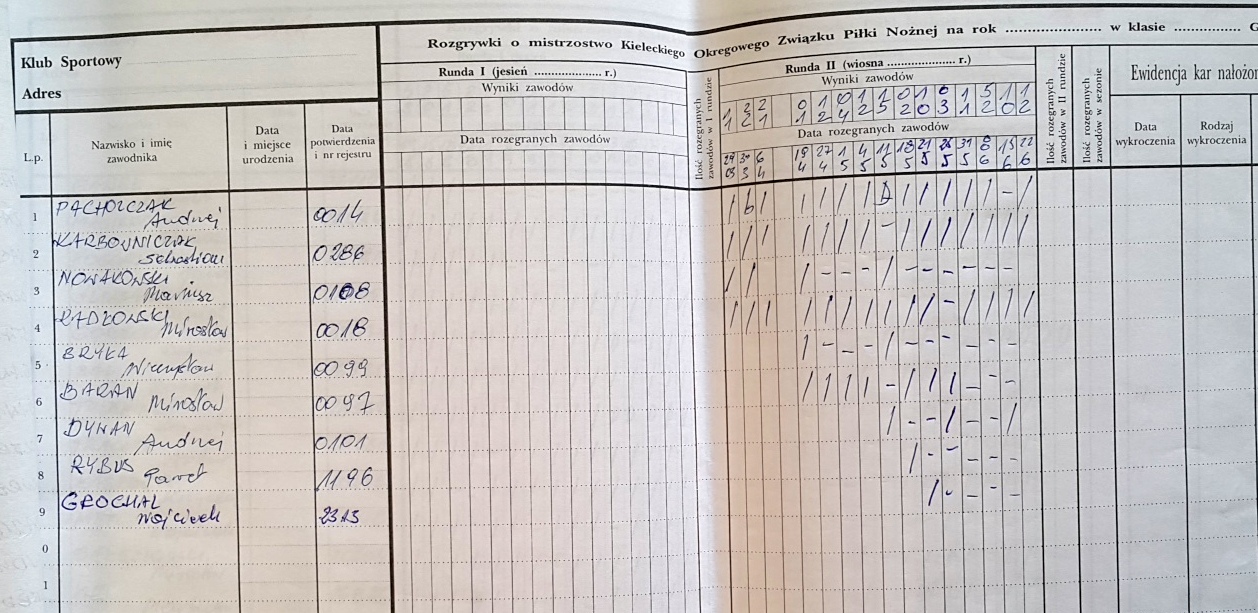 Klub Sportowy
Adres
Rozgrywki o mistrzostwo Kieleckiego Okręgowego Związku Piłki Nożnej na rok ........................ w klasie .................
Runda I (jesień .................... r.)
Wyniki zawodów
Data rozegranych zawodów
Ilość rozegranych zawodów w I rundzie
Runda II (wiosna .................... r.)
Wyniki zawodów
1 2 2 0 1 0 1 1 0 1 0 1 5 1 1
1 2 1 1 2 4 2 5 2 0 3 1 2 0 2
Data rozegranych zawodów
24 30 6 19 27 1 4 11 18 21 26 31 8 15 22
03 3 4 4 4 5 5 5 5 5 5 5 6 6 6
Ilość rozegranych zawodów w II rundzie
Ilość rozegranych zawodów w sezonie
Ewidencja kar nałożon
L.p.
Nazwisko i imię zawodnika
Data i miejsce urodzenia
Data potwierdzenia i nr rejestru
Data wykroczenia
Rodzaj wykroczenia
1 PACHOLCZAK Andrzej 0014
2 KARBOWNICZAK Sebastian 0286
3 NOWAKOWSKI Mariusz 0108
4 RADŁOWSKI Mirosław 0018
5 BRYŁA Mieczysław 0099
6 BARAN Mirosław 0097
7 DYNAN Andrzej 0101
8 RYBUS Paweł 1196
9 GROCHAL Wojciech 2313
0
1